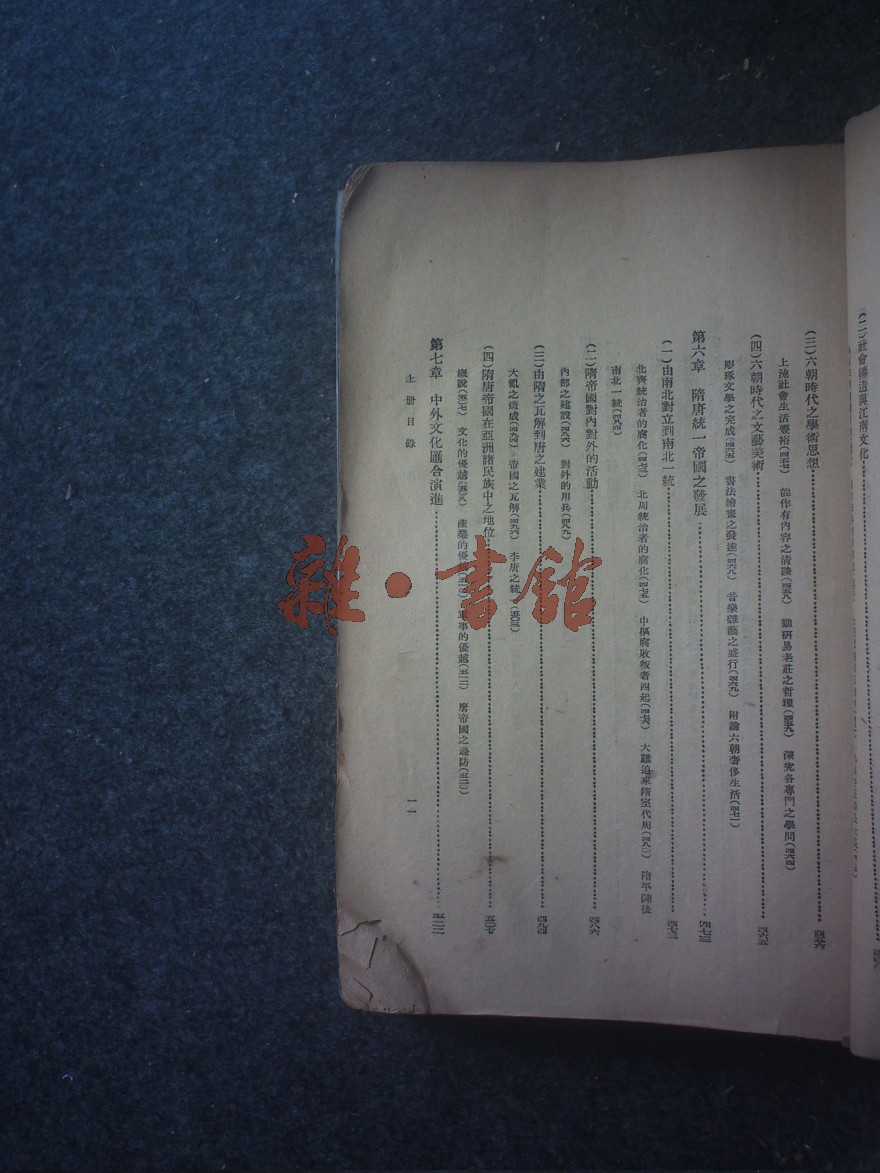 (二)社會締造與江南文化
(三)六朝時代之學術思想 四五六
上流社會生活豐裕(四五七) 能作有內容之清談(四五八) 勤研易老莊之哲理(四五九) 深究各專門之學問(四六四)
(四)六朝時代之文藝美術 四六五
彫琢文學之完成(四六五) 書法繪畫之發達(四六八) 音樂雜藝之盛行(四六九) 附論六朝奢侈生活(四七一)
第六章 隋唐統一帝國之發展 四七三
(一)由南北對立到南北一統 四七三
北齊統治者的腐化(四七三) 北周統治者的腐化(四七五) 中樞腐敗叛者四起(四七六) 大難迫來隋室代周(四八二) 隋平陳後
南北一統(四八四)
(二)隋帝國對內對外的活動 四八六
內部之建設(四八六) 對外的用兵(四八九)
(三)由隋之瓦解到唐之建業 四九四
大亂之造成(四九四) 帝國之瓦解(四九六) 李唐之統一(五〇三)
(四)隋唐帝國在亞洲諸民族中之地位 五〇七
概說(五〇七) 文化的優越(五〇八) 產業的優越 軍事的優越(五一二) 唐帝國之邊防
第七章 中外文化匯合演進
上冊目錄
一一
雜·書館